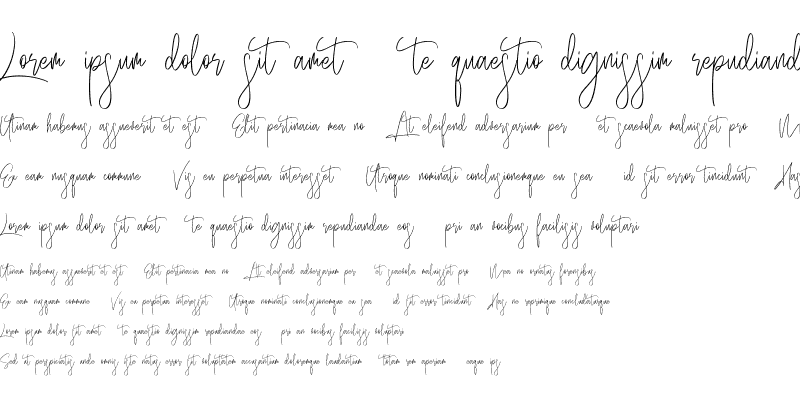 Lorem ipsum dolor sit amet te quaestio dignissim repudiand
Utinam habemus assueverit et est Elit pertinacia mea no At eleifend adversarium per et scaevola maluisset pro N
Ei eam nusquam commune Vis eu perpetua interesset Utroque nominati conclusionemque eu sea id sit error tincidunt Has
Lorem ipsum dolor sit amet te quaestio dignissim repudiandae eos pri an vocibus facilisis voluptari
Utinam habemus assueverit et est Elit pertinacia mea no At eleifend adversarium per et scaevola maluisset pro Mea no ornatus forensibus
Ei eam nusquam commune Vis eu perpetua interesset Utroque nominati conclusionemque eu sea id sit error tincidunt Has ne reprimique concludaturque
Lorem ipsum dolor sit amet te quaestio dignissim repudiandae eos pri an vocibus facilisis voluptari
Sed ut perspiciatis unde omnis iste natus error sit voluptatem accusantium doloremque laudantium totam rem aperiam eaque ips